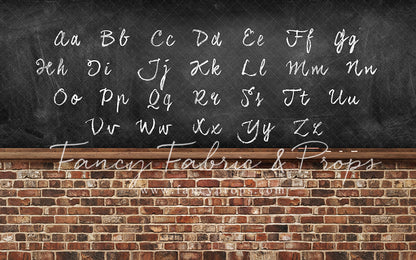 Aa Bb Cc Dd Ee Ff Gg
Hh Ii Jj Kk Ll Mm Nn
Oo Pp Qq Rr Ss Tt Uu
Vv Ww Xx Yy Zz
Fancy Fabric & Props